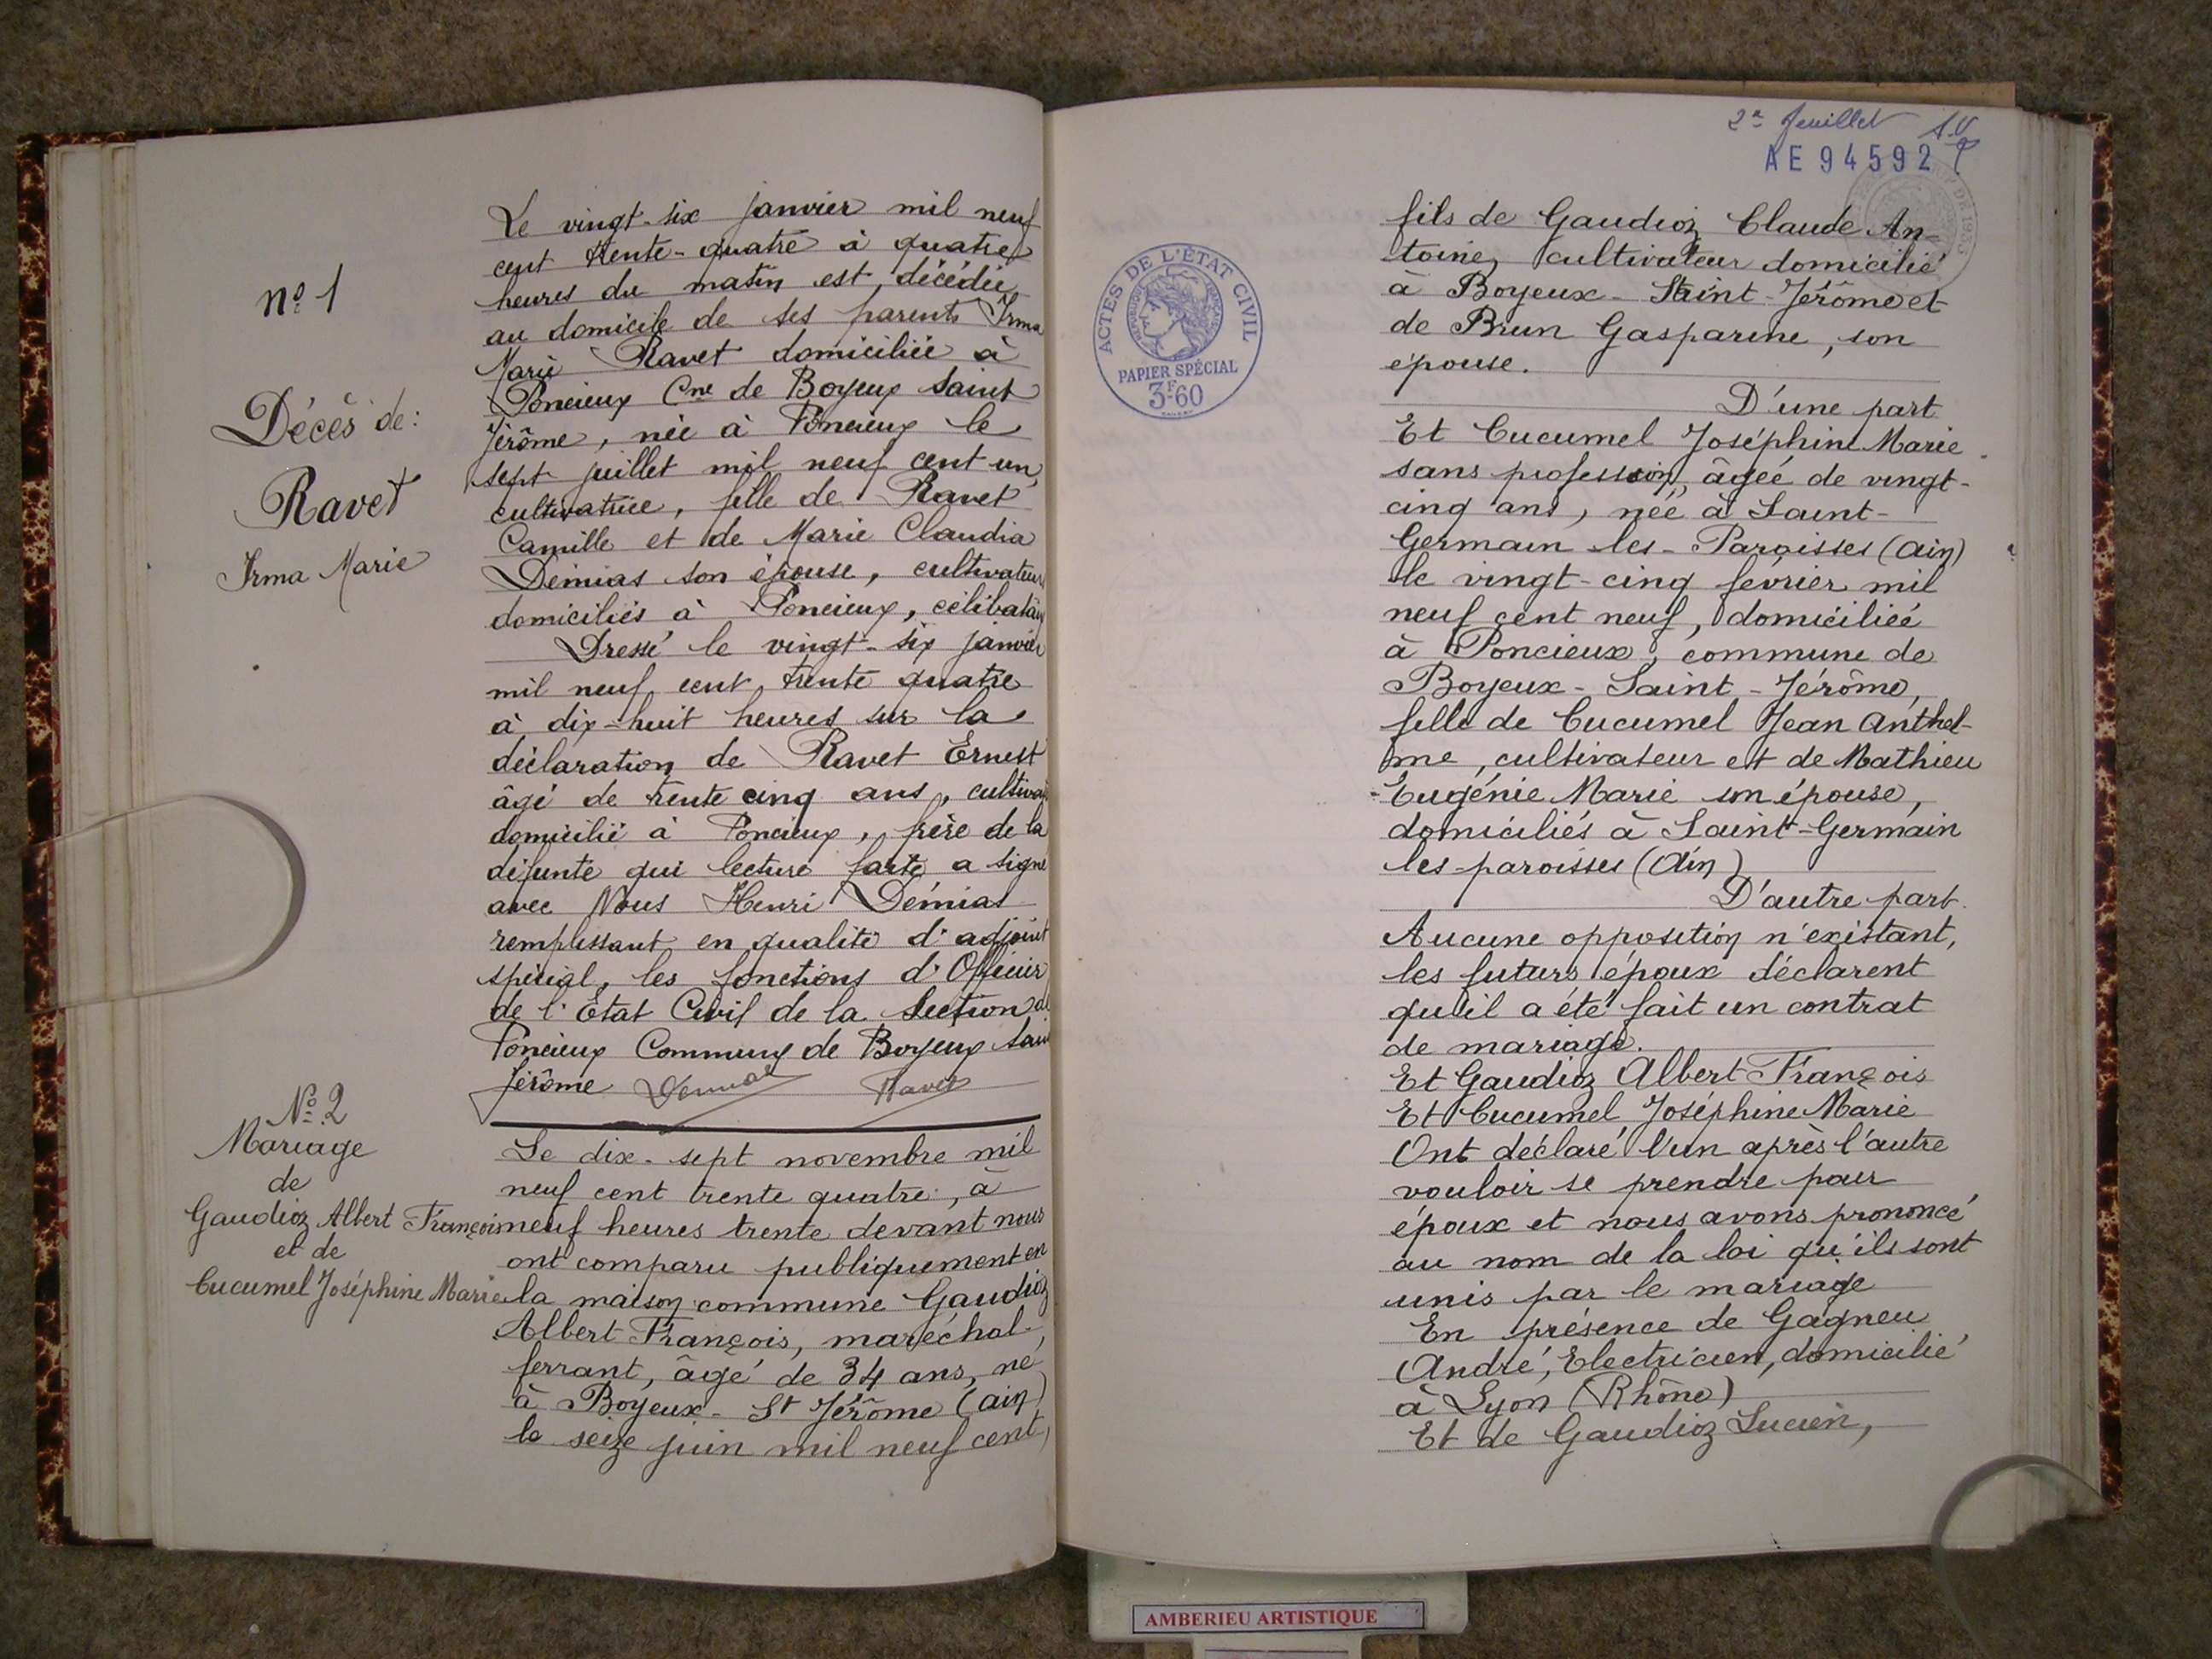 n° 1
Décès de:
Ravet
Irma Marie
Le vingt-six janvier mil neuf
cent trente-quatre à quatre
heures du matin est décédée
au domicile de ses parents Irma
Marie Ravet domiciliée à
Poncieux Cne de Boyeux Saint
Jérôme, née à Poncieux le
sept juillet mil neuf cent un,
cultivatrice, fille de Ravet
Camille et de Marie Claudia
Démias son épouse, cultivateurs
domiciliés à Poncieux, célibataire
Dressé le vingt-six janvier
mil neuf cent trente quatre
à dix-huit heures sur la
déclaration de Ravet Ernest
âgé de trente cinq ans, cultiva
domicilié à Poncieux, frère de la
défunte qui lecture faite a signé
avec Nous Henri Démias
remplissant en qualité d'adjoint
spécial, les fonctions d'Officier
de l'Etat Civil de la Section de
Poncieux Commune de Boyeux Sain
Jérôme Demias Ravet
N° 2
Mariage
de
Gaudioz Albert François
et de
Cucumel Joséphine Marie
Le dix-sept novembre mil
neuf cent trente quatre, à
neuf heures trente devant nous
ont comparu publiquement en
la maison commune Gaudioz
Albert François, maréchal-
ferrant, âgé de 34 ans, né
à Boyeux-St Jérôme (ain)
le seize juin mil neuf cent,
2e feuillet
AE 94592
ACTES DE L'ÉTAT CIVIL
RÉPUBLIQUE FRANÇAISE
PAPIER SPÉCIAL
3F60
fils de Gaudioz Claude An-
toine, cultivateur domicilié
à Boyeux-Saint-Jérôme et
de Brun Gasparine, son
épouse.
D'une part
Et Cucumel Joséphine Marie
sans profession, âgée de vingt-
cinq ans, née à Saint-
Germain-les-Paroisses (Ain)
le vingt-cinq février mil
neuf cent neuf, domiciliée
à Poncieux, commune de
Boyeux-Saint-Jérôme,
fille de Cucumel Jean Anthel-
me, cultivateur et de Mathieu
Eugénie Marie son épouse,
domiciliés à Saint-Germain
les-paroisses (Ain)
D'autre part.
Aucune opposition n'existant,
les futurs époux déclarent
qu'il a été fait un contrat
de mariage.
Et Gaudioz Albert François
Et Cucumel Joséphine Marie
Ont déclaré l'un après l'autre
vouloir se prendre pour
époux et nous avons prononcé
au nom de la loi qu'ils sont
unis par le mariage
En présence de Gagneu
André, Electricien, domicilié
à Lyon (Rhône)
Et de Gaudioz Lucien,
AMBERIEU ARTISTIQUE